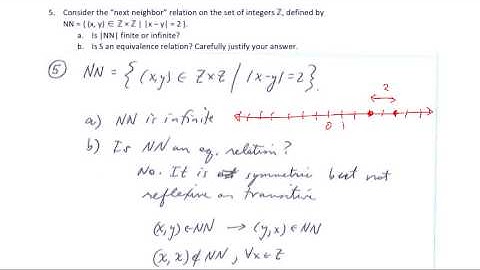 5. Consider the "next neighbor" relation on the set of integers ℤ, defined by
NN = { (x, y) ∈ ℤ × ℤ | |x − y| = 2 }.
a. Is |NN| finite or infinite?
b. Is S an equivalence relation? Carefully justify your answer.
5 NN = { (x,y) ∈ Z×Z / |x-y|=2 }.
2
a) NN is infinite
0 1
b) Is NN an eq. relation?
No. It is symmetric but not
reflexive or transitive
(x,y) ∈ NN → (y,x) ∈ NN
(x,x) ∉ NN, ∀x ∈ Z